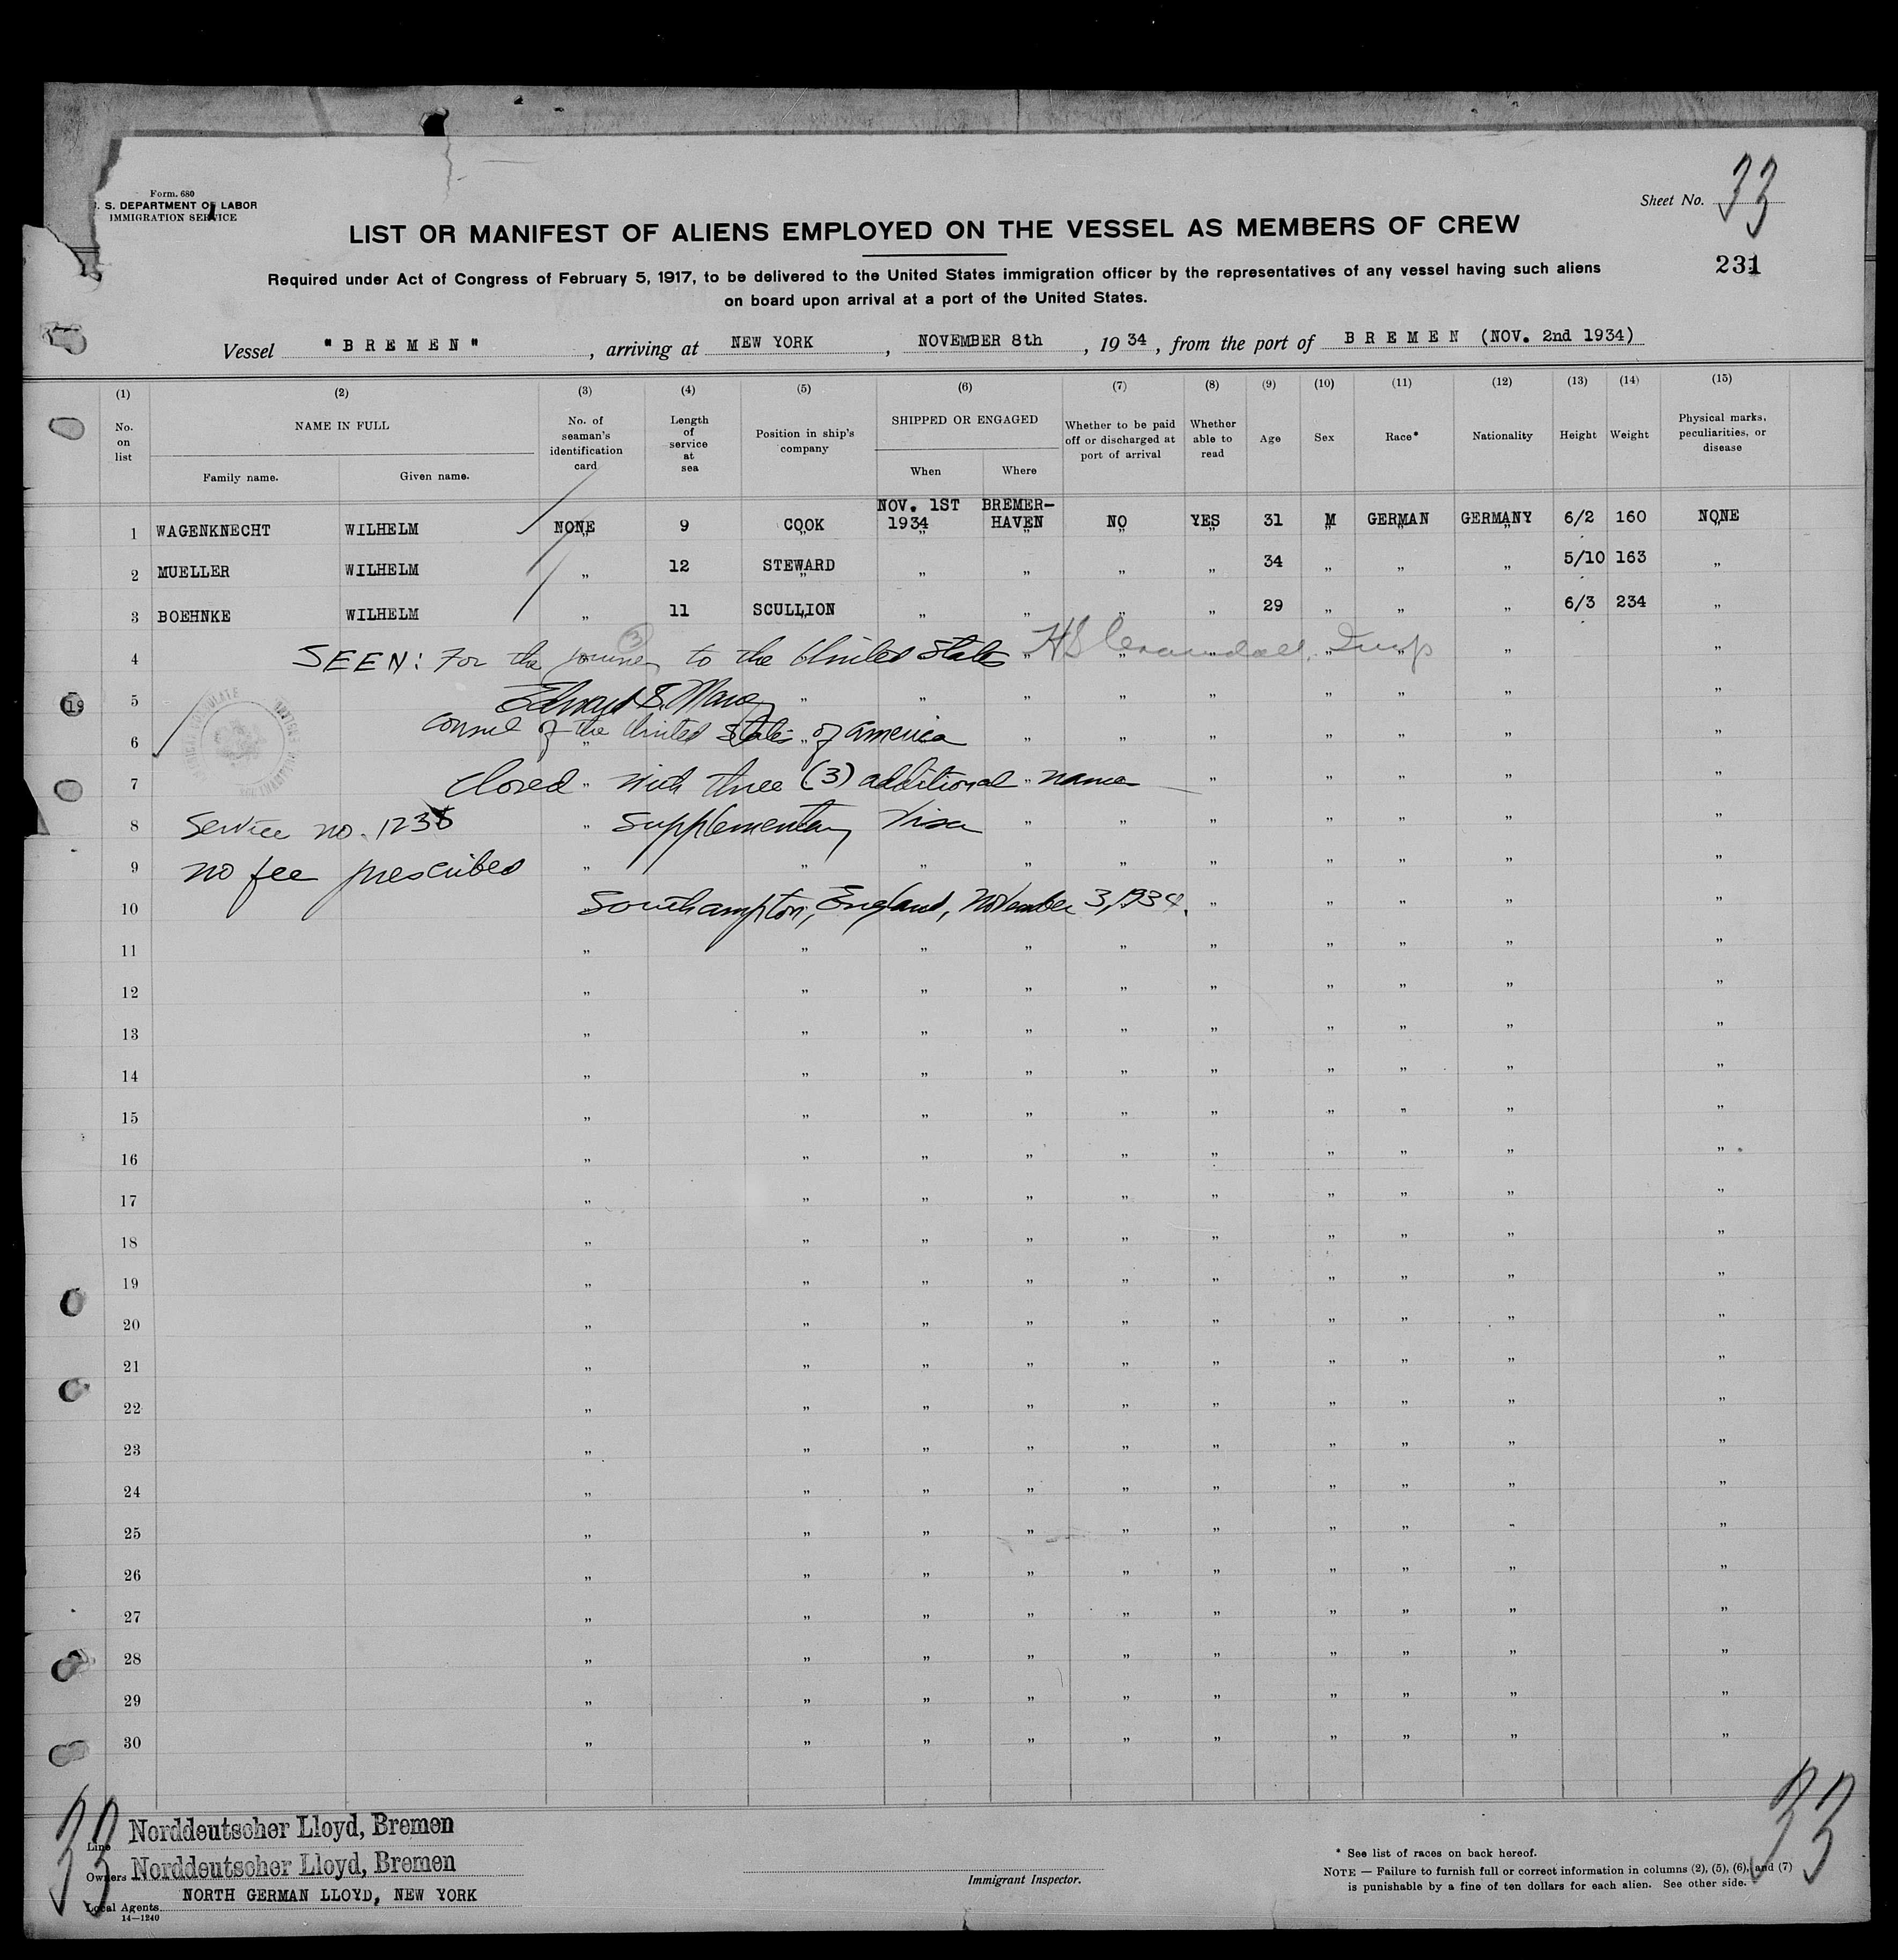 Form. 680
S. DEPARTMENT OF LABOR
IMMIGRATION SERVICE
Sheet No. 33
LIST OR MANIFEST OF ALIENS EMPLOYED ON THE VESSEL AS MEMBERS OF CREW
231
Required under Act of Congress of February 5, 1917, to be delivered to the United States immigration officer by the representatives of any vessel having such aliens
on board upon arrival at a port of the United States.
Vessel "BREMEN", arriving at NEW YORK, NOVEMBER 8th, 1934, from the port of BREMEN (NOV. 2nd 1934)
(1) (2) (3) (4) (5) (6) (7) (8) (9) (10) (11) (12) (13) (14) (15)
No. on list
NAME IN FULL
Family name. Given name.
No. of seaman's identification card
Length of service at sea
Position in ship's company
SHIPPED OR ENGAGED
When Where
Whether to be paid off or discharged at port of arrival
Whether able to read
Age
Sex
Race*
Nationality
Height
Weight
Physical marks, peculiarities, or disease
1 WAGENKNECHT WILHELM NONE 9 COOK NOV. 1ST 1934 BREMER-HAVEN NO YES 31 M GERMAN GERMANY 6/2 160 NONE
2 MUELLER WILHELM „ 12 STEWARD „ „ „ „ 34 „ „ „ 5/10 163 „
3 BOEHNKE WILHELM „ 11 SCULLION „ „ „ „ 29 „ „ „ 6/3 234 „
4 SEEN: For the journey to the United States
3
5 Edward S.
6 Consul of the United States of America
7 Closed with three (3) additional names
8 Service no. 1238 Supplementary Visa
9 no fee prescribed
10 Southampton, England, November 3, 1934.
11
12
13
14
15
16
17
18
19
20
21
22
23
24
25
26
27
28
29
30
33
33
Line Norddeutscher Lloyd, Bremen
Owners Norddeutscher Lloyd, Bremen
Local Agents NORTH GERMAN LLOYD, NEW YORK
14—1240
Immigrant Inspector.
* See list of races on back hereof.
NOTE — Failure to furnish full or correct information in columns (2), (5), (6), and (7)
is punishable by a fine of ten dollars for each alien. See other side.